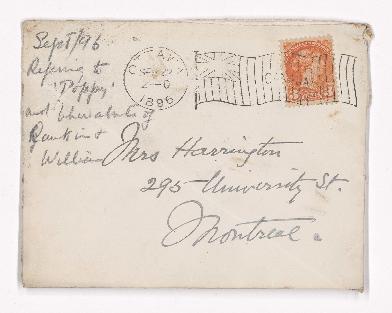 Sept/96
Referring to
'Poppy'
and whereabouts of
Rankin &
William
OTTAWA
2-0
1896
Mrs Harrington
295 University St.
Montreal.